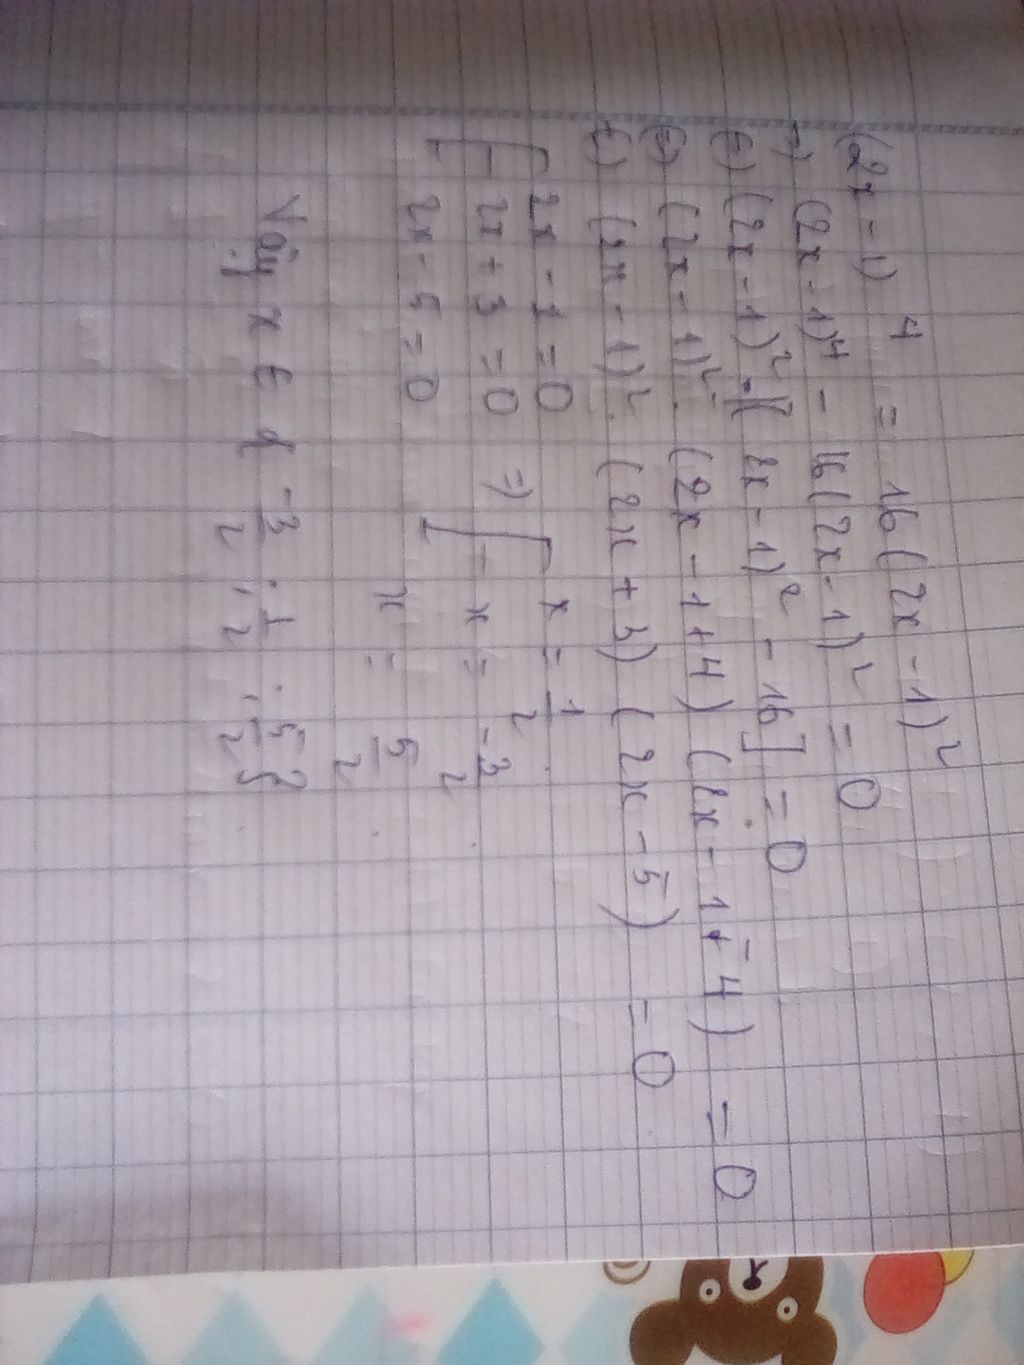 (2x - 1)^4 = 16(2x - 1)^2
=) (2x - 1)^4 - 16(2x - 1)^2 = 0
(=) (2x - 1)^2 [(2x - 1)^2 - 16] = 0
(=) (2x - 1)^2 . (2x - 1 + 4) (2x - 1 - 4) = 0
(=) (2x - 1)^2 . (2x + 3) (2x - 5) = 0
[ 2x - 1 = 0 [ x = 1/2
2x + 3 = 0 =) x = -3/2
2x - 5 = 0 x = 5/2
Vậy x ∈ { -3/2 ; 1/2 ; 5/2 }